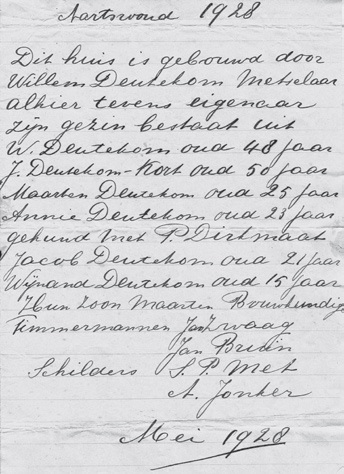 Aartswoud 1928
Dit huis is gebouwd door
Willem Deutekom Metselaar
alhier tevens eigenaar
zijn gezin bestaat uit
W. Deutekom oud 48 jaar
J. Deutekom-Kort oud 50 jaar
Maarten Deutekom oud 25 jaar
Annie Deutekom oud 23 jaar
gehuwd met P. Dirkmaat
Jacob Deutekom oud 21 jaar
Wijnand Deutekom oud 15 jaar
Hun zoon Maarten Bouwkundige
Timmermannen Jan Zwaag
Jan Bruin
Schilders S. P. Met
A. Jonker
Mei 1928